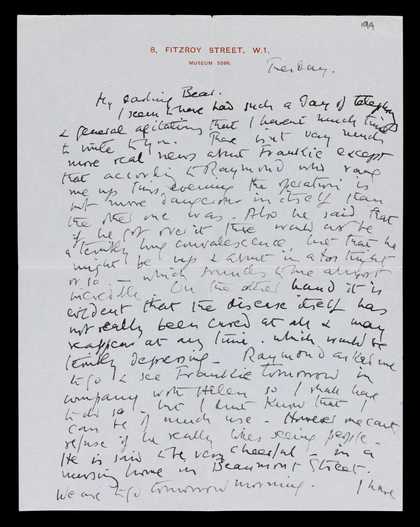 8, FITZROY STREET, W.1,
MUSEUM 5096.
Tuesday.
My darling Bear.
I seem to have had such a day of telephoning
& general agitations that I haven't much time
to write to you. There isn't very much
more real news about Frankie except
that according to Raymond who rang
me up this evening the operation is
not more dangerous in itself than
the other one was. Also he said that
if he got over it there would not be
a terribly long convalescence but that he
might be up & about in a fortnight
or so – which sounds to me almost
incredible. On the other hand it is
evident that the disease itself has
not really been cured at all & may
reappear at any time. which would be
terribly depressing – Raymond asked me
to go & see Frankie tomorrow in
company with Helen so I shall have
to do so – but I don't know that I
can be of much use. However one can't
refuse if he really likes seeing people.
He is said to be very cheerful – in a
nursing home in Beaumont Street.
We are to go tomorrow morning. I have